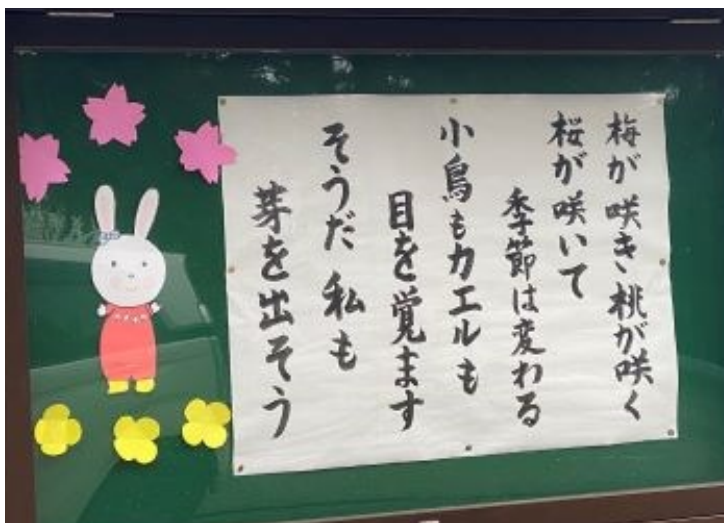 梅が咲き桃が咲く
桜が咲いて
季節は変わる
小鳥もカエルも
目を覚ます
そうだ私も
芽を出そう